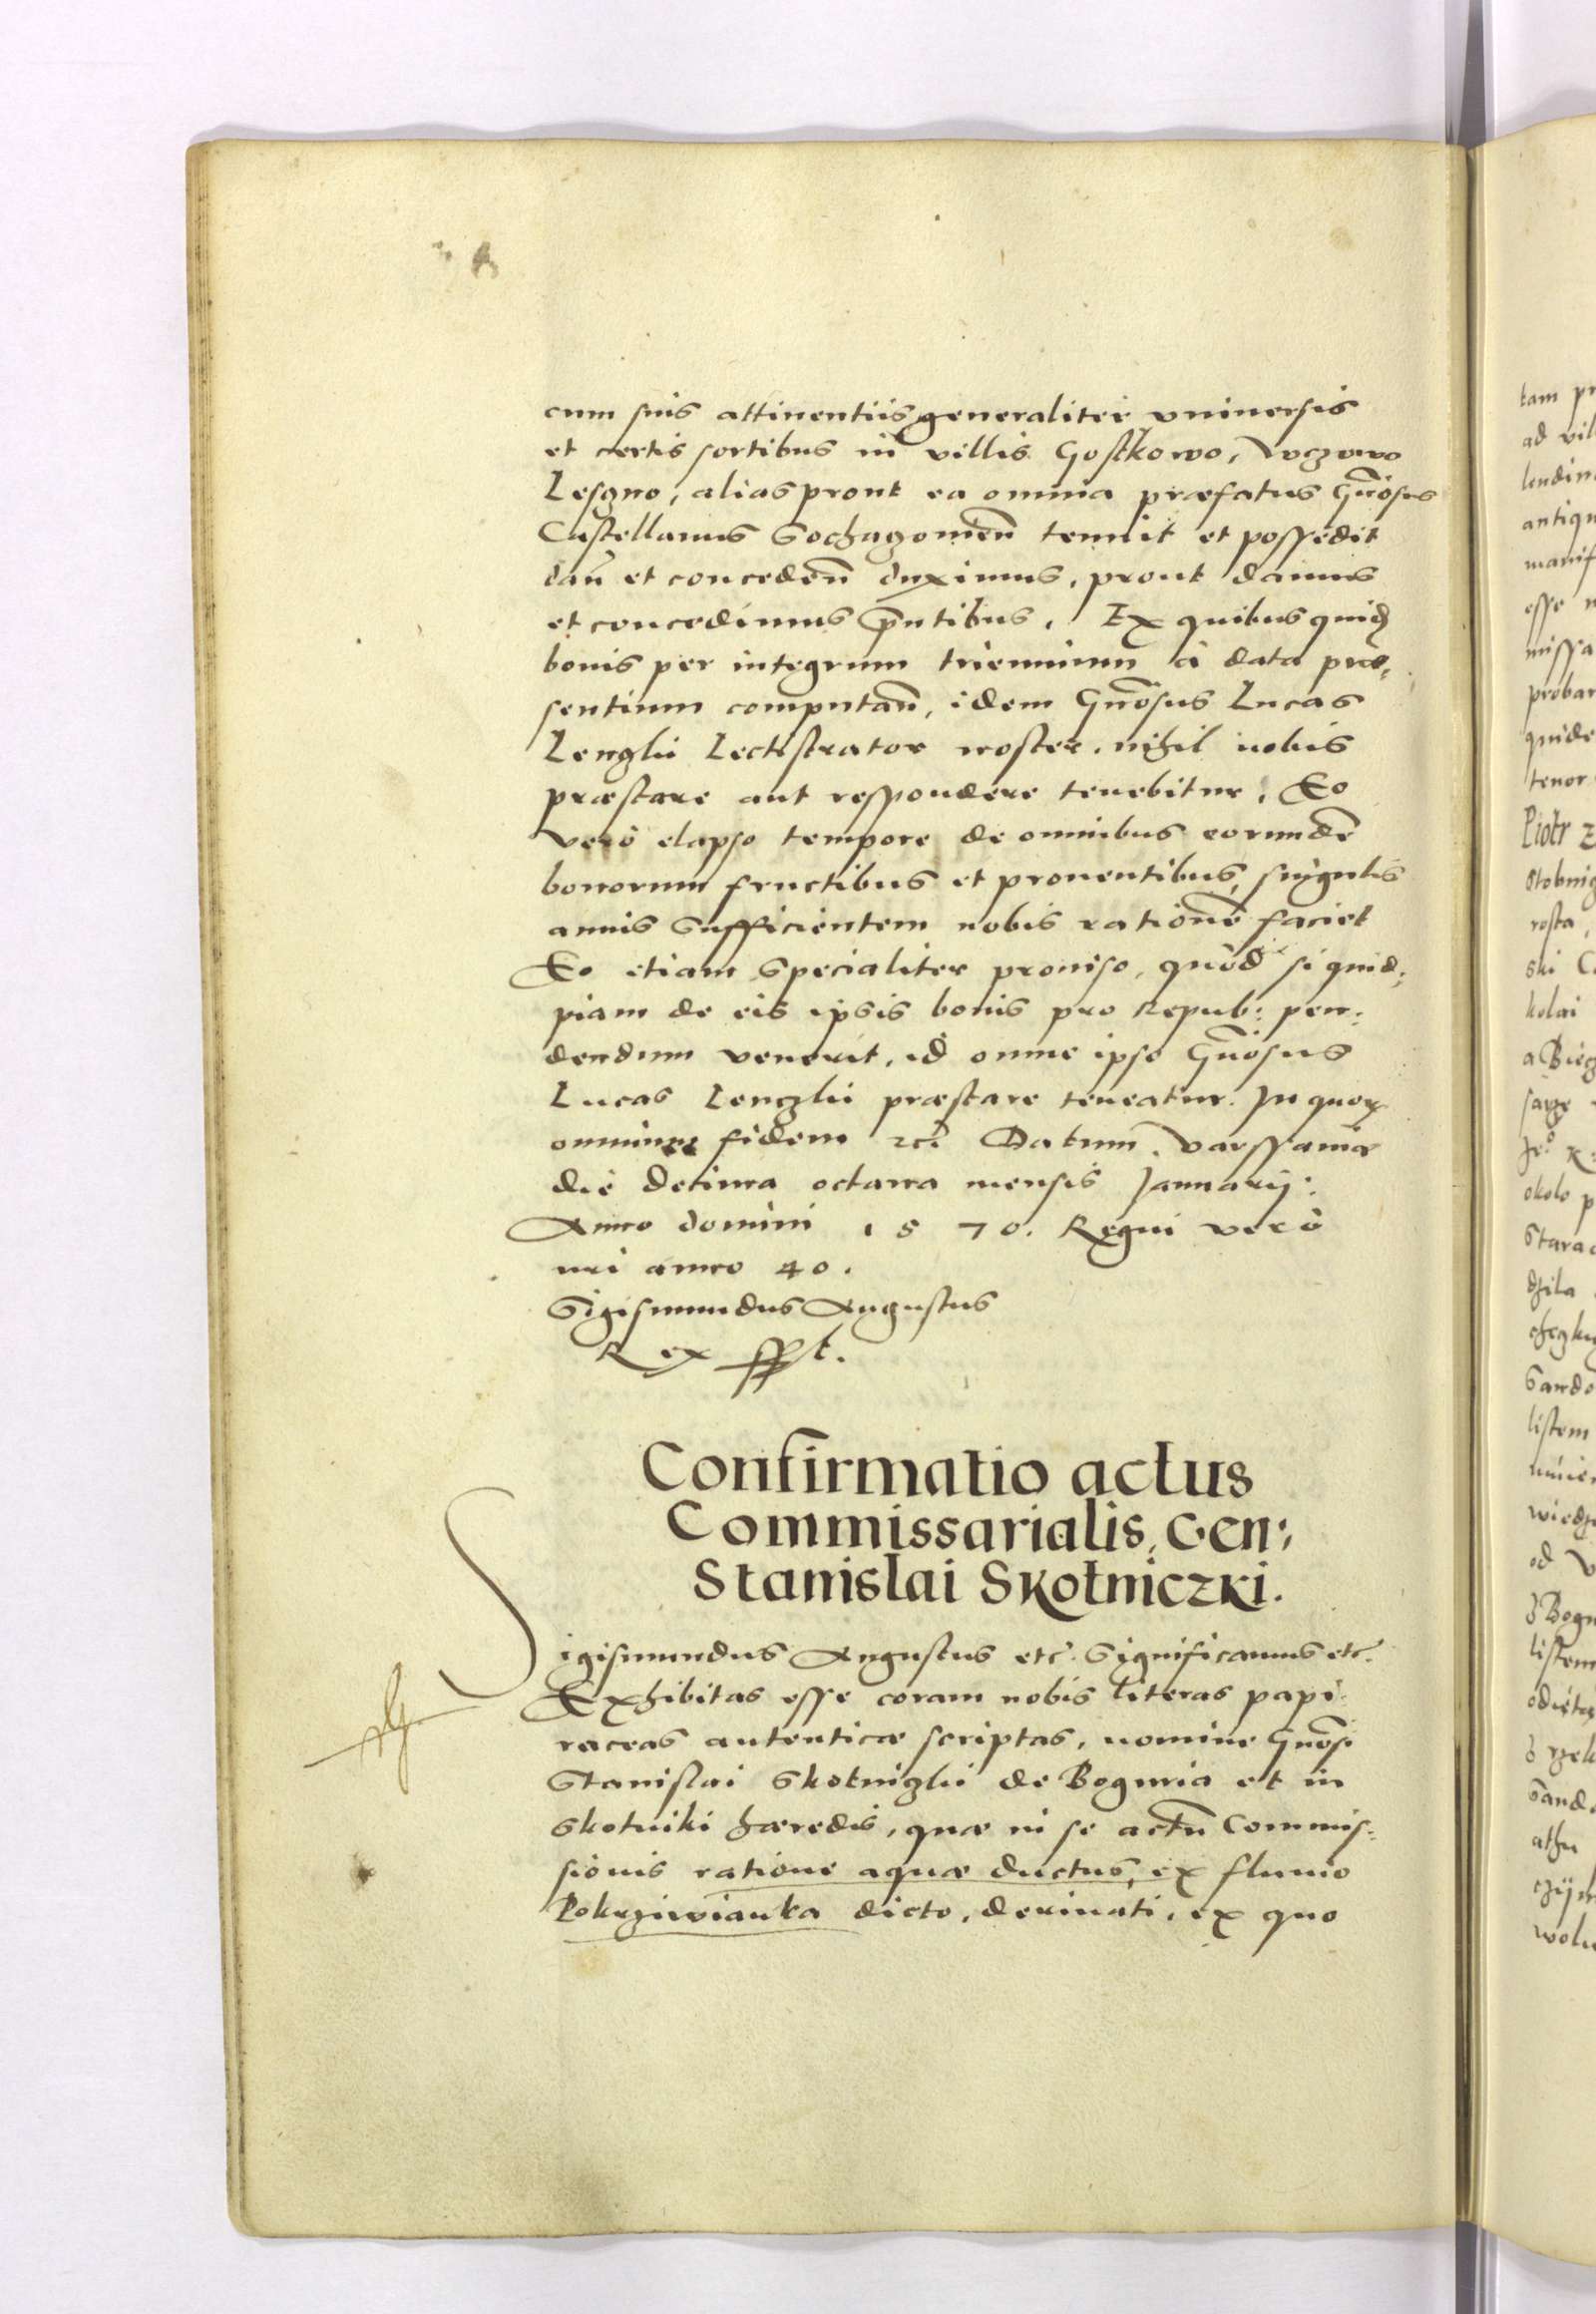 cum suis attinentiis generaliter vniuersis
et certis sortibus in villis Gostkowo,
Lesgno, alias prout ea omnia præfatus Gn̄osus
Castellanus Sochazouien̄ tenuit et possedit
dan̄ et conceden̄ duximus, prout damus
et concedimus p̄ntibus. Ex quibus quid
bonis per integrum triennium à data præ„
sentium computan̄, idem Gn̄osus Lucas
Lenczki Lectistrator noster, nihil nobis
præstare aut respondere tenebitur. Eo
verò elapso tempore de omnibus eorundē
bonorum fructibus et prouentibus, singulis
annis sufficientem nobis rationē faciet
Eo etiam specialiter prouiso, quòd si quid:
piam de eis ipsis bonis pro Repub: pen:
dendum venerit, id omne ipse Gn̄osus
Lucas Lenczki præstare teneatur. In quoꝝ
omnium fidem etc. Datum. Varssauiæ
die decima octaua mensis Januarij:
Anno domini 1570. Regni verò
nri anno 40.
Sigismundus Augustus
Rex sst.
Confirmatio actus
Commissarialis, Gen:
Stanislai Skotniczki.
Sigismundus Augustus etc. Significamus etc.
Exhibitas esse coram nobis literas papi:
raceas autenticæ scriptas, nomine Gn̄osi
Stanislai Skotniczki de Boguria et in
Skotniki hæredis, quæ in se actū Commis:
sionis ratione aquæ ductus, ex fluuio
Pokrziwianka dicto, deriuati, ex quo
tam
ad vil
antiqu
manif
esse
missa
probar
quide
tenor
Piotr
Stobni
rosta,
ski
kolai
a
okolo
Stara
Sando
listem
od
listem
athu
wolu